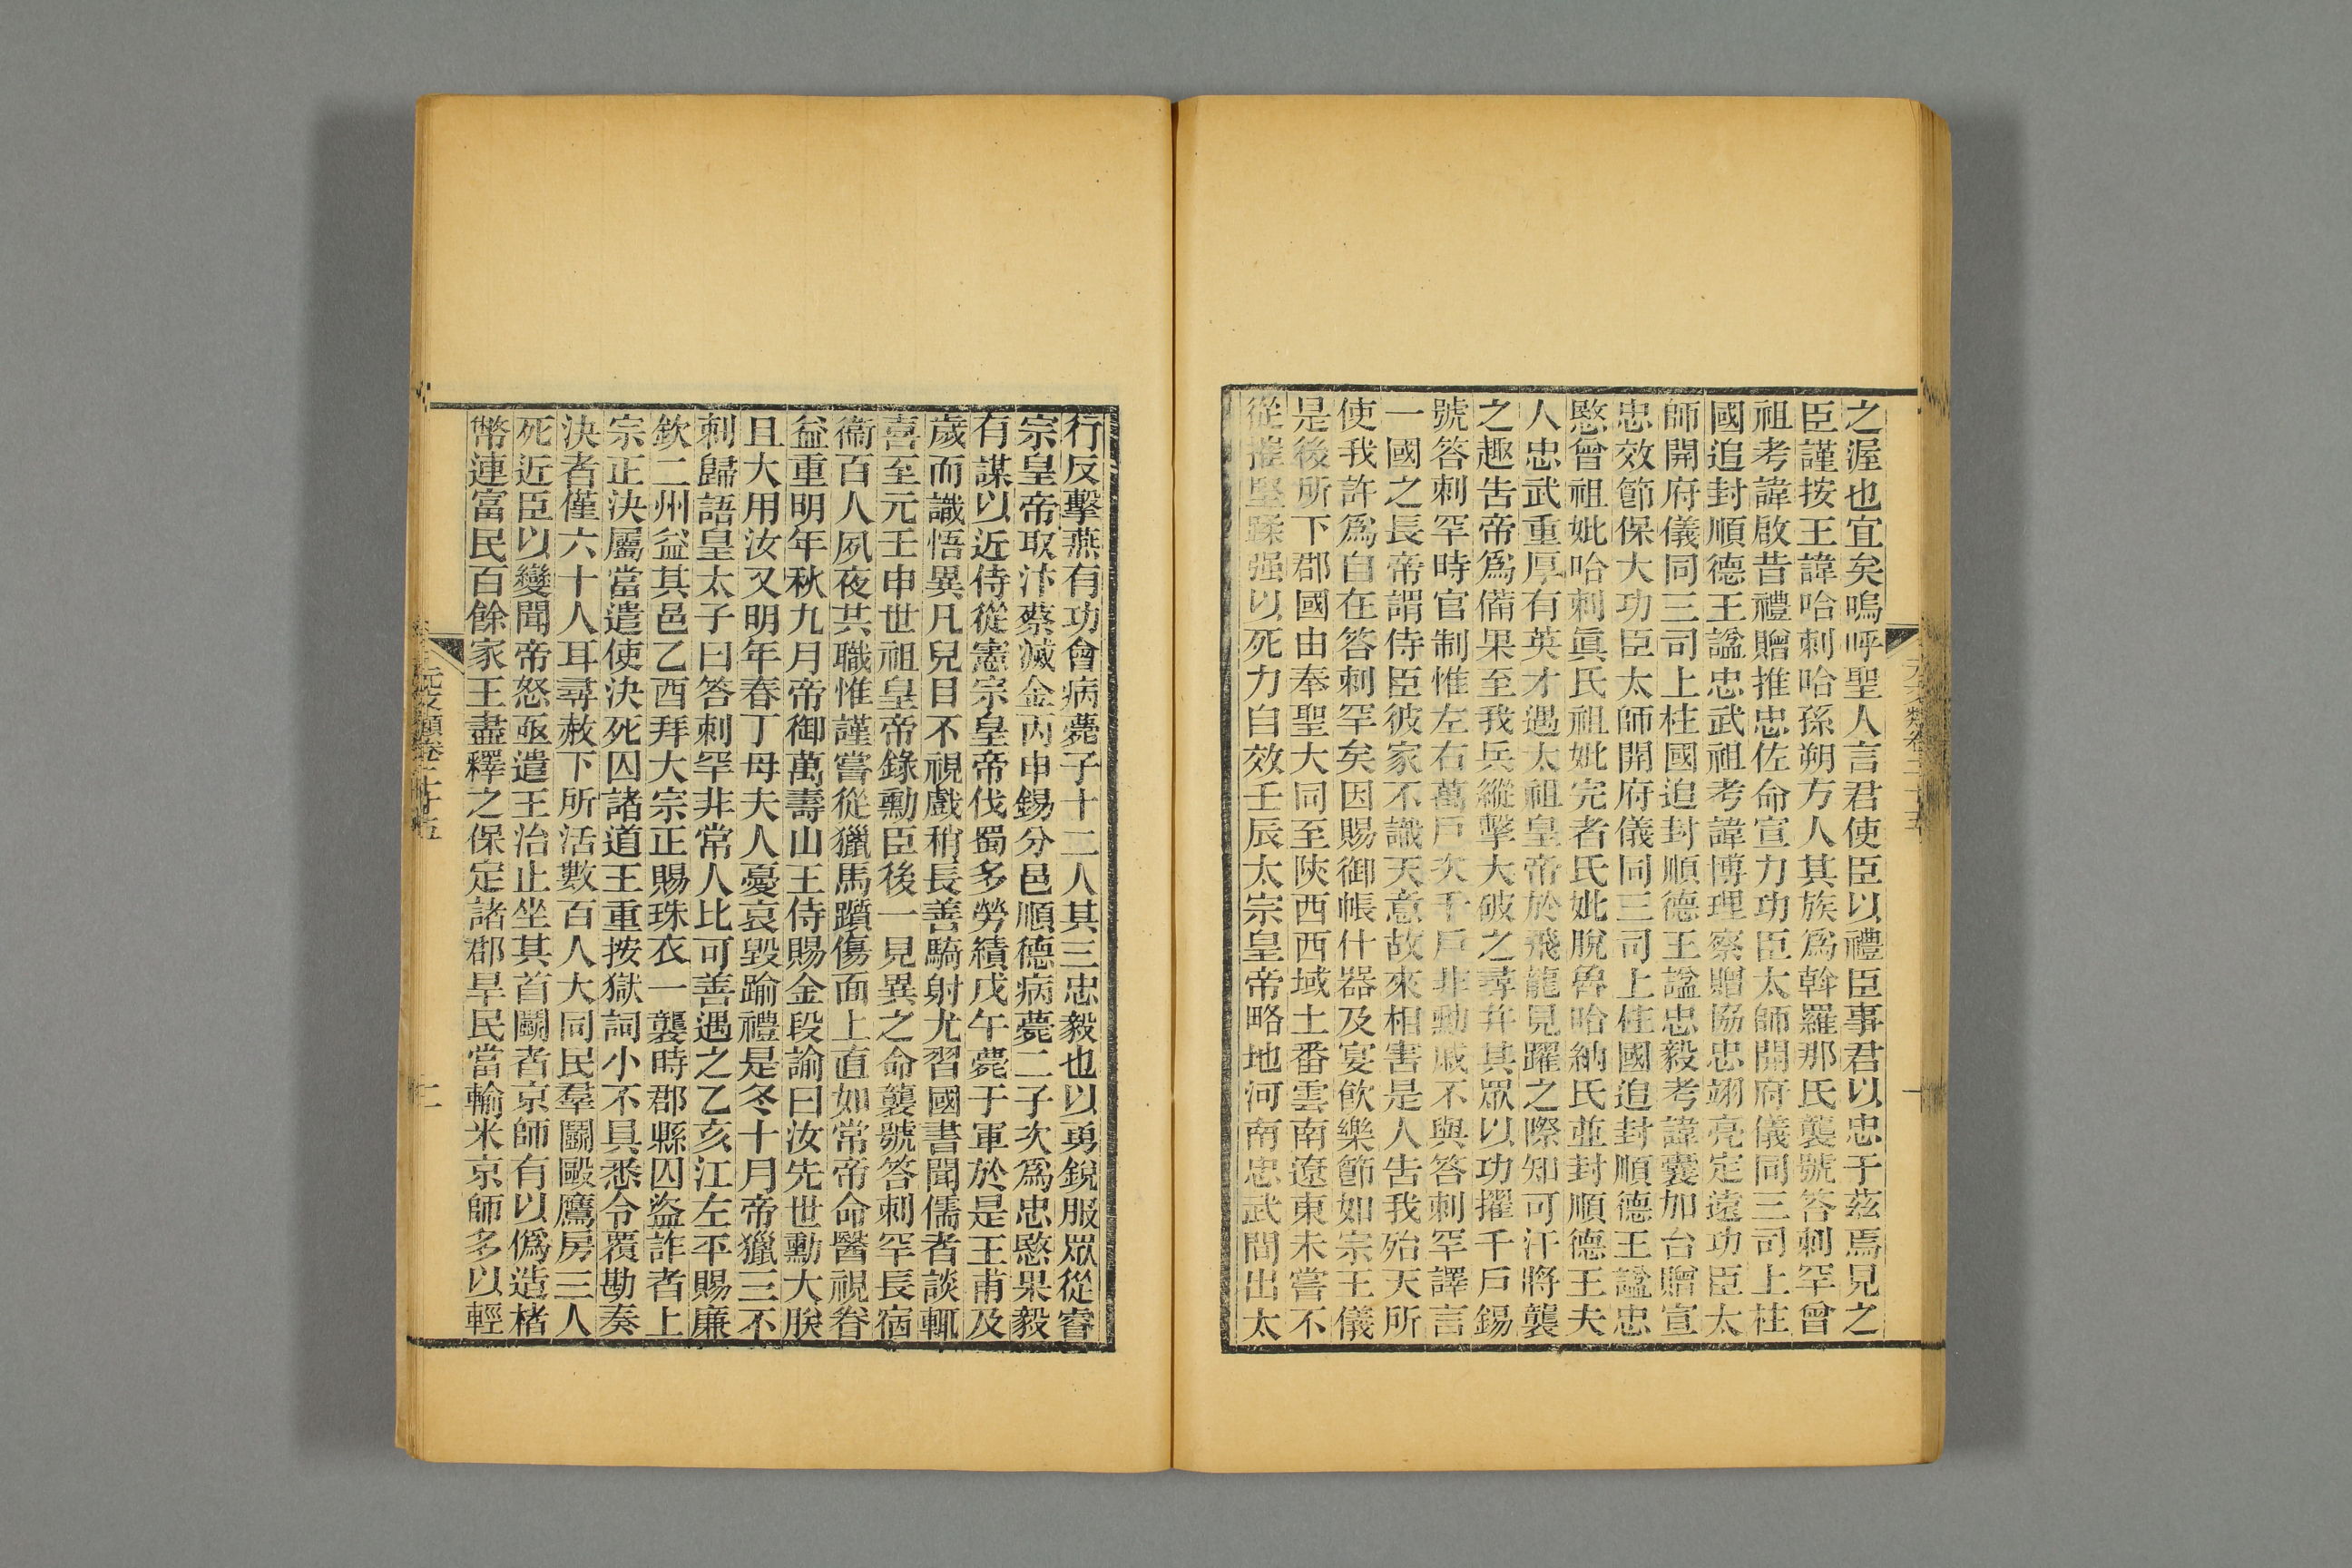 之渥也宜矣嗚呼聖人言君使臣以禮臣事君以忠于茲焉見之
臣謹按王諱哈剌哈孫朔方人其族爲斡羅那氏襲號答剌罕曾
祖考諱啟昔禮贈推忠佐命宣力功臣太師開府儀同三司上柱
國追封順德王諡忠武祖考諱博理察贈協忠翊亮定遠功臣太
師開府儀同三司上柱國追封順德王諡忠毅考諱囊加台贈宣
忠效節保大功臣太師開府儀同三司上柱國追封順德王諡忠
愍曾祖妣哈剌眞氏祖妣完者氏妣脫魯哈納氏並封順德王夫
人忠武重厚有英才遇太祖皇帝於飛龍見躍之際知可汗將襲
之趣告帝爲備果至我兵縱擊大破之尋并其眾以功擢千戶錫
號答剌罕時官制惟左右萬戶次千戶非勳戚不與答剌罕譯言
一國之長帝謂侍臣彼家不識天意故來相害是人告我殆天所
使我許爲自在答剌罕矣因賜御帳什器及宴飮樂節如宗王儀
是後所下郡國由奉聖大同至陜西西域土番雲南遼東未嘗不
從摧堅蹂强以死力自效壬辰太宗皇帝略地河南忠武間出太
行反擊燕有功會病薨子十二人其三忠毅也以勇銳服眾從睿
宗皇帝取汴蔡滅金丙申錫分邑順德病薨二子次爲忠愍果毅
有謀以近侍從憲宗皇帝伐蜀多勞績戊午薨于軍於是王甫及
歲而識悟異凡兒目不視戲稍長善騎射尤習國書聞儒者談輒
喜至元壬申世祖皇帝錄勳臣後一見異之命襲號答剌罕長宿
衞百人夙夜共職惟謹嘗從獵馬躓傷面上直如常帝命醫視眷
益重明年秋九月帝御萬壽山王侍賜金段諭曰汝先世勳大朕
且大用汝又明年春丁母夫人憂哀毀踰禮是冬十月帝獵三不
剌歸語皇太子曰答剌罕非常人比可善遇之乙亥江左平賜廉
欽二州益其邑乙酉拜大宗正賜珠衣一襲時郡縣囚盜詐者上
宗正決屬當遣使決死囚諸道王重按獄詞小不具悉令覆勘奏
決者僅六十人耳尋赦下所活數百人大同民羣鬭毆鷹房三人
死近臣以變聞帝怒亟遣王治止坐其首鬭者京師有以僞造楮
幣連富民百餘家王盡釋之保定諸郡旱民當輸米京師多以輕
元文類卷二十五